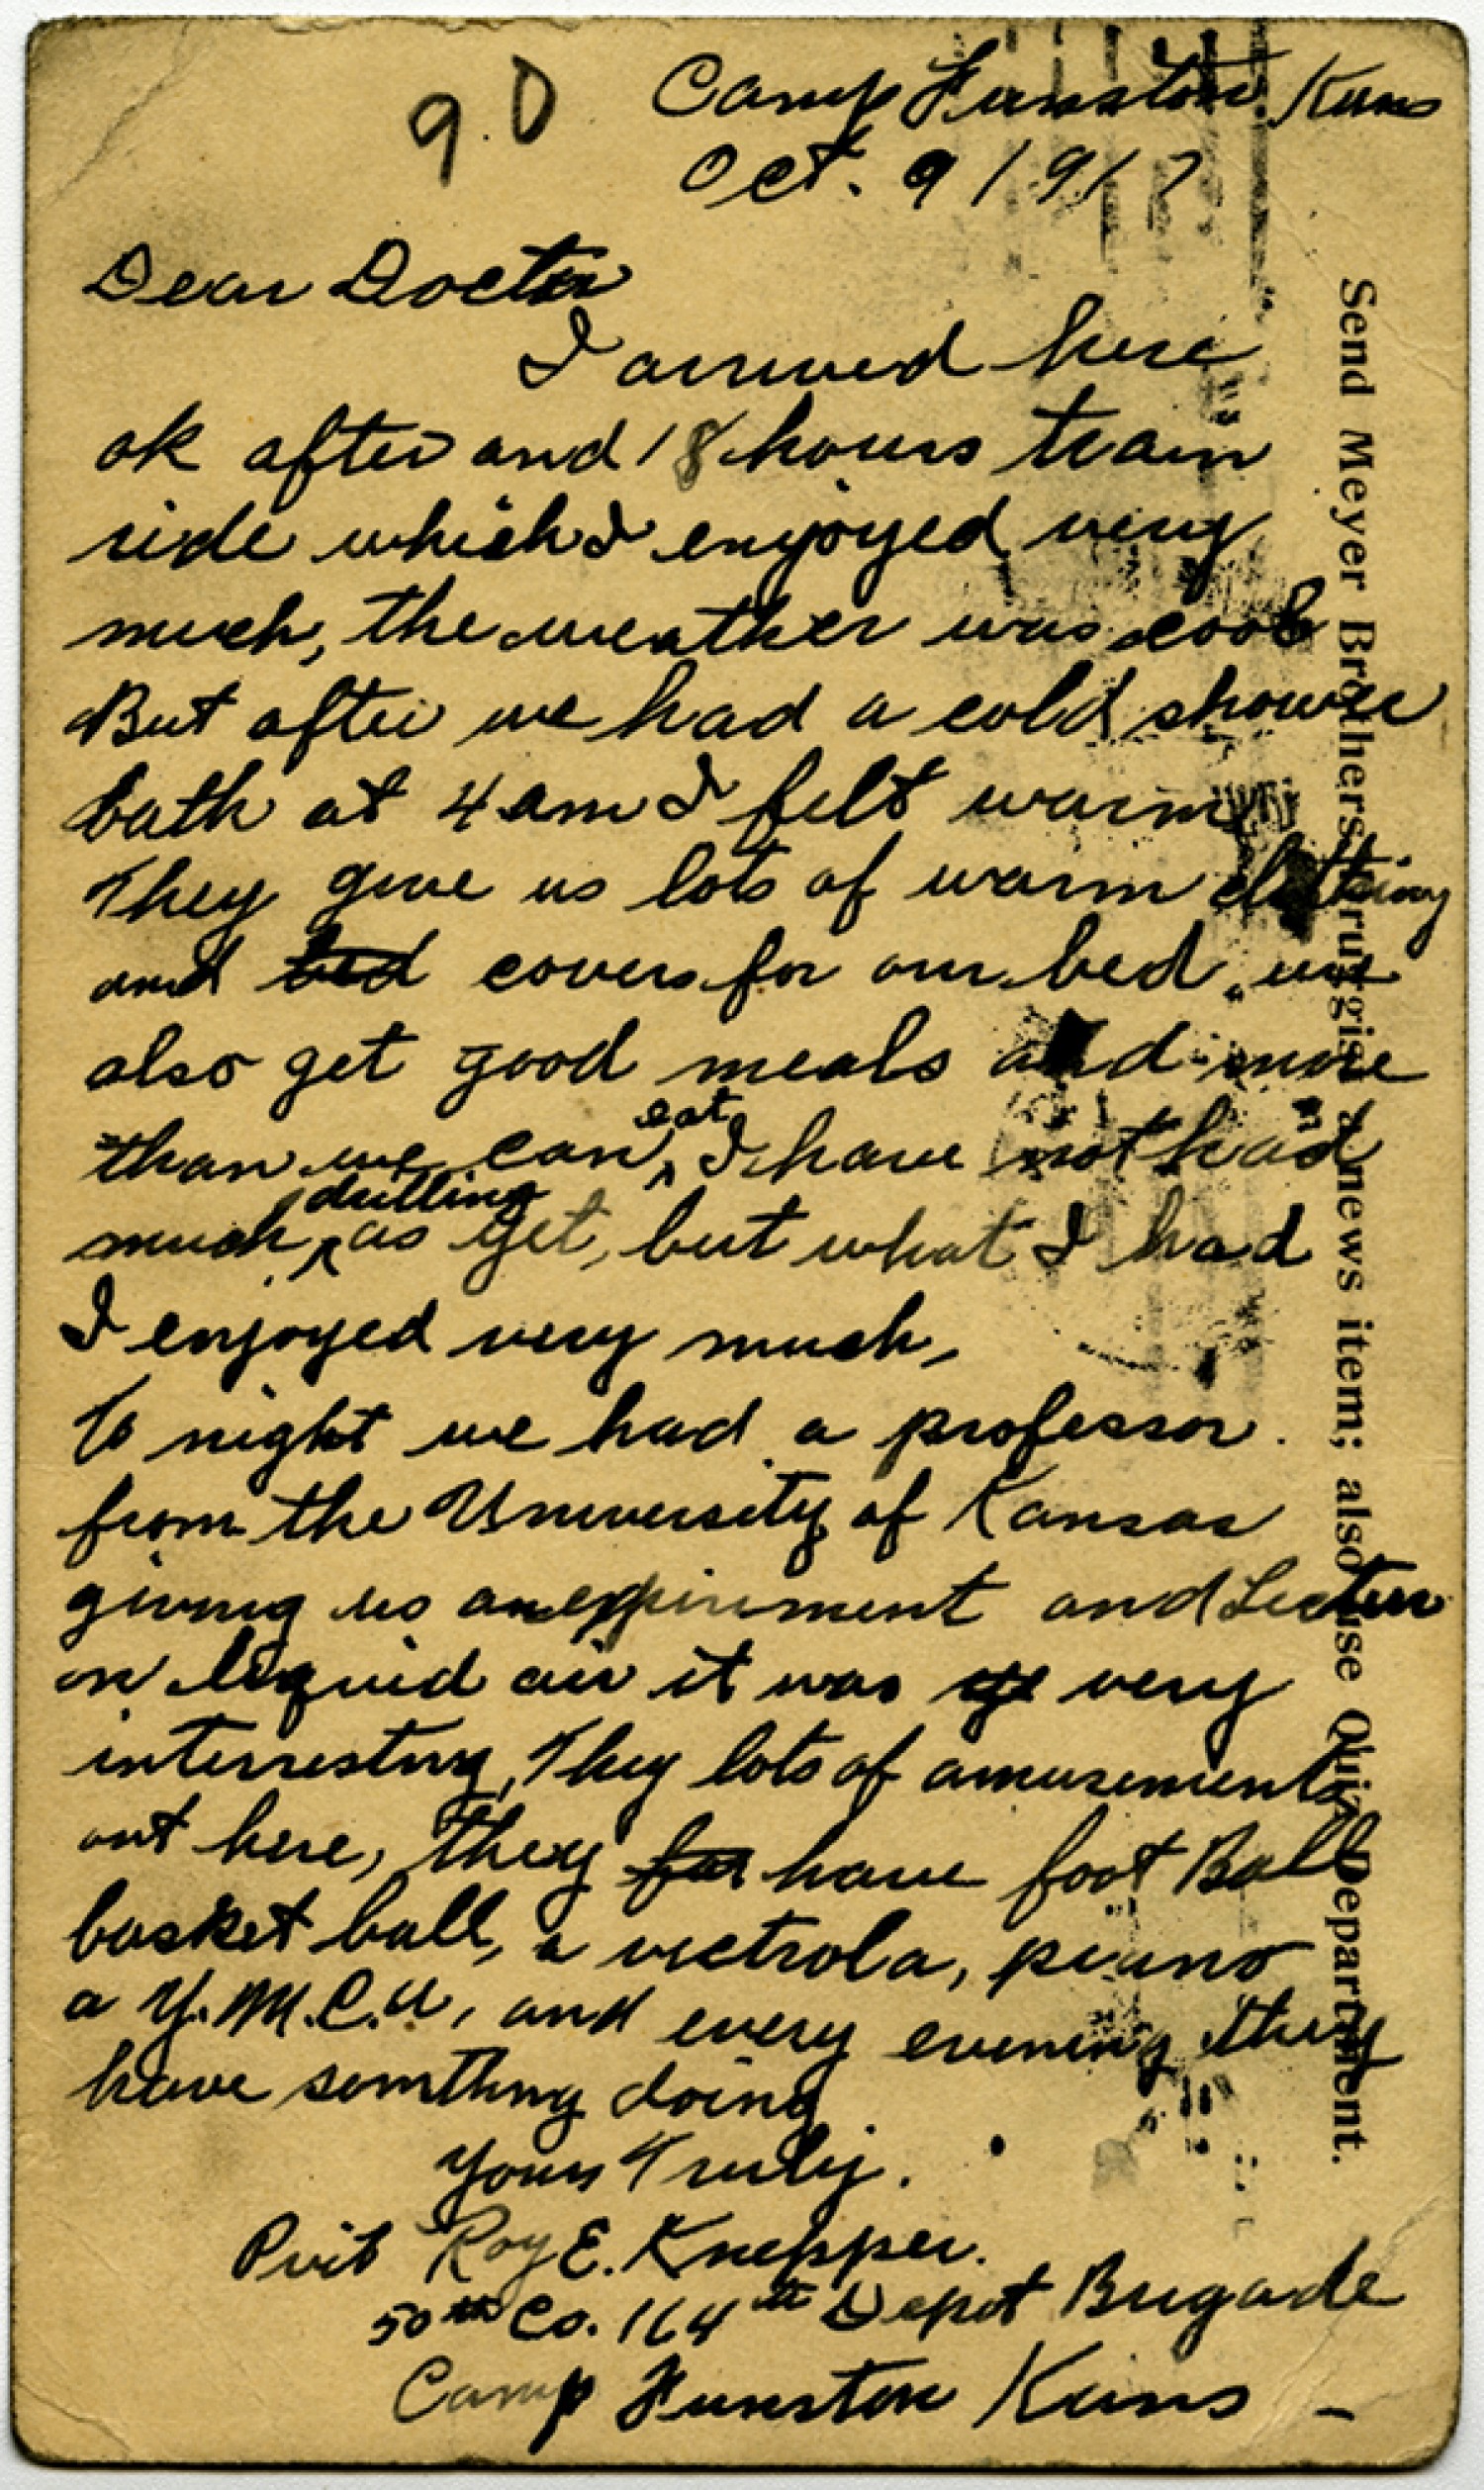 9.0
Camp Funston Kans
Oct. 9 1917
Dear Doctor
I arrived here
ok after and 18 hours train
ride which I enjoyed very
much, the weather was cool
But after we had a cold shower
bath at 4 am I felt warm
They give us lots of warm clothing
and bed covers for our bed, we
also get good meals and more
than we can eat, I have not had
much drilling as yet, but what I had
I enjoyed very much,
To night we had a professor
from the University of Kansas
giving us an expiriment and Lecture
on liquid air it was ye very
interresting, They lots of amusements
out here, they for have foot Ball
basket ball, a victrola, piano
a Y.M.C.A, and every evening they
have somthing doing
Yours Truly.
Privt Roy E. Knepper.
50th Co. 164th Depot Brigade
Camp Funston Kans -
Send Meyer Brothers Druggist a news item; also use Quiz Department.